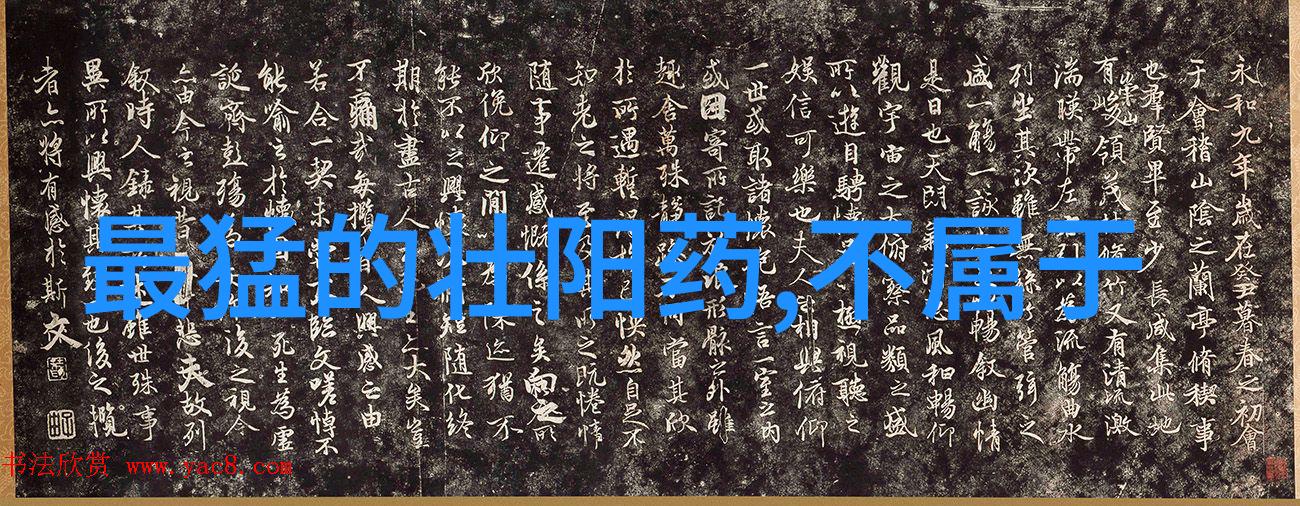 永和九年歲在癸丑暮春之初會
于會稽山陰之蘭亭脩稧事
也羣賢畢至少長咸集此地
有崇山峻領茂林脩竹又有清流激
湍暎帶左右引以為流觴曲水
列坐其次雖無管弦之
盛一觴一詠暢敘幽情
是日也天朗風和暢仰
觀宇宙之大俯察品類之盛
所以遊目騁懷極視聽之
娛信可樂也夫人之相與俯仰
一世或取諸懷抱悟言一室之內
或因寄所託形骸之外雖
趣舍萬殊靜當其欣
於所遇暫得怏然自足不
知老之將至之既惓情
隨事遷感慨係之矣向之所
欣俛仰之閒陳迹猶不
能不以之興懷脩短隨化終
期於盡古人大矣豈
不痛哉每攬昔人興感之由
若合一契未嘗臨文嗟悼不
能喻之於懷死生為虛
誕齊彭殤為後之視今
亦由今之視昔悲夫故列
敘時人錄其雖世殊事
異所以興懷其致也後之攬
者亦將有感於斯文
最猛的壮阳药,不属于
书法欣赏 www.yac8.com